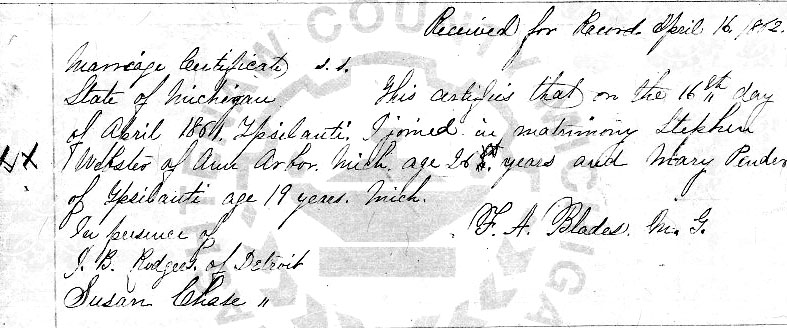 Received for Record April 16, 1862.
Marriage Certificate s.s.
State of Michigan This certifies that on the 16th day
of April 1861, Ypsilanti, I joined in matrimony Stephen
Webster of Ann Arbor. Mich. age 26 years and Mary Pender
of Ypsilanti age 19 years. Mich.
F. A. Blades. M. G.
In presence of
J. B. Rodgers. of Detroit
Susan Chase "